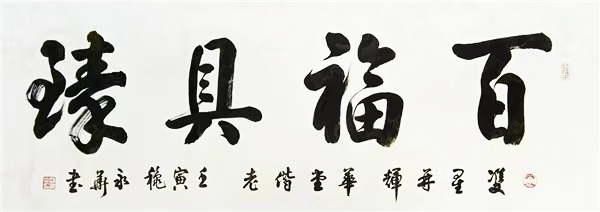 百福具臻
雙星並輝華堂偕老 壬寅龝永華書